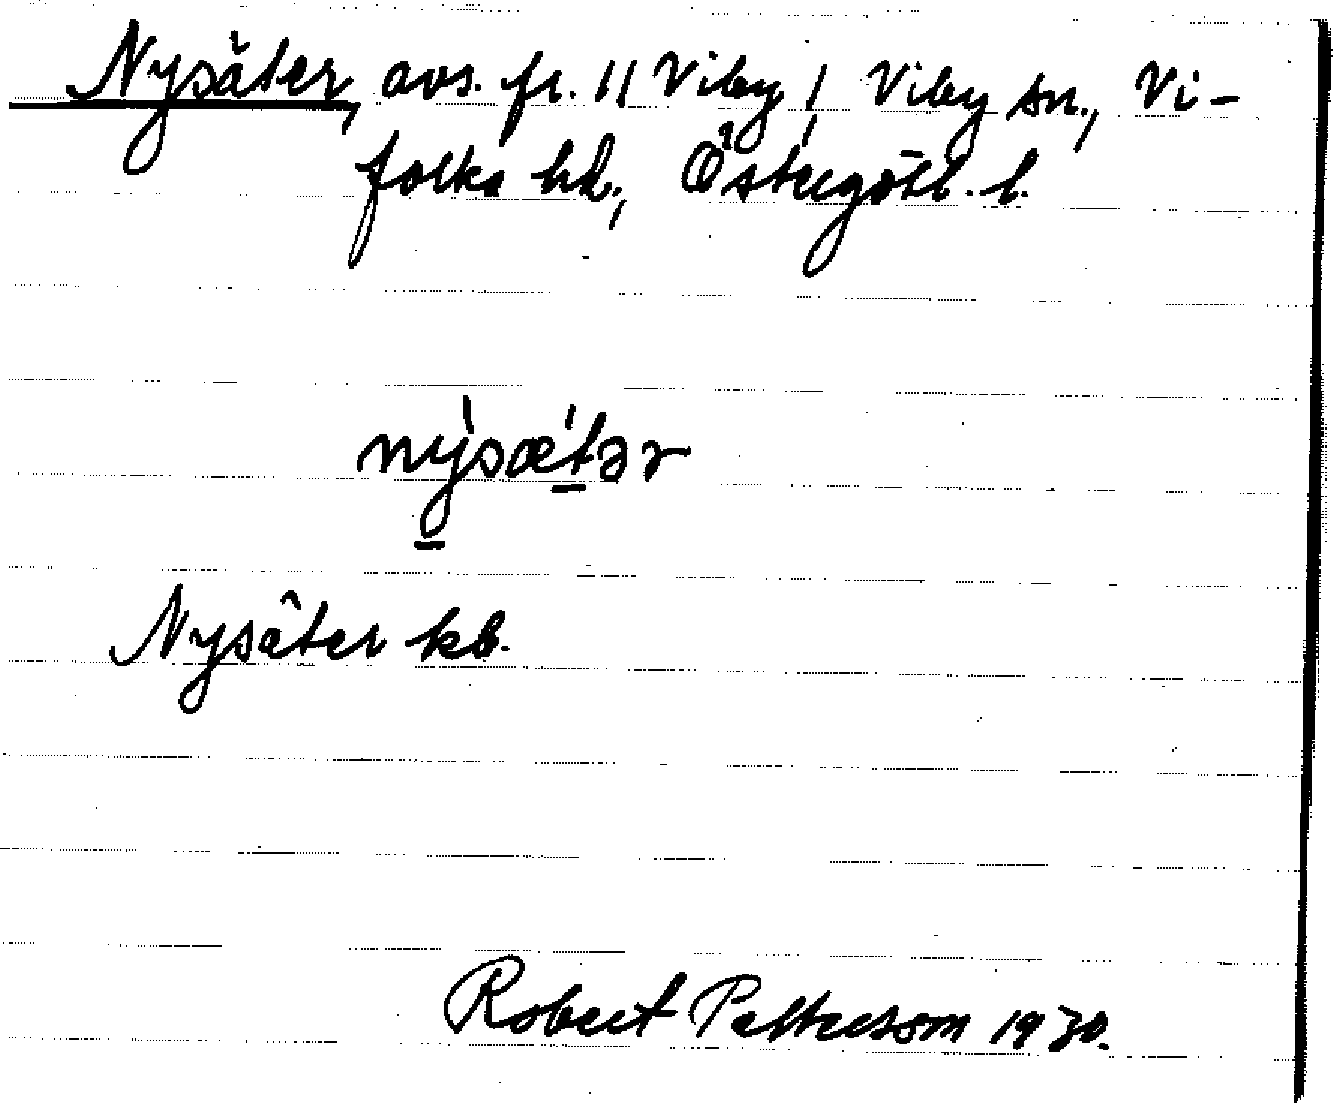 Nysäter, avs. fr. 11 Viby, Viby sn., Vi-
folka hd., Östergötl. l.
nỳ̱sæt̠́ər
Nysäter kb.
Robert Pettersson 1930.